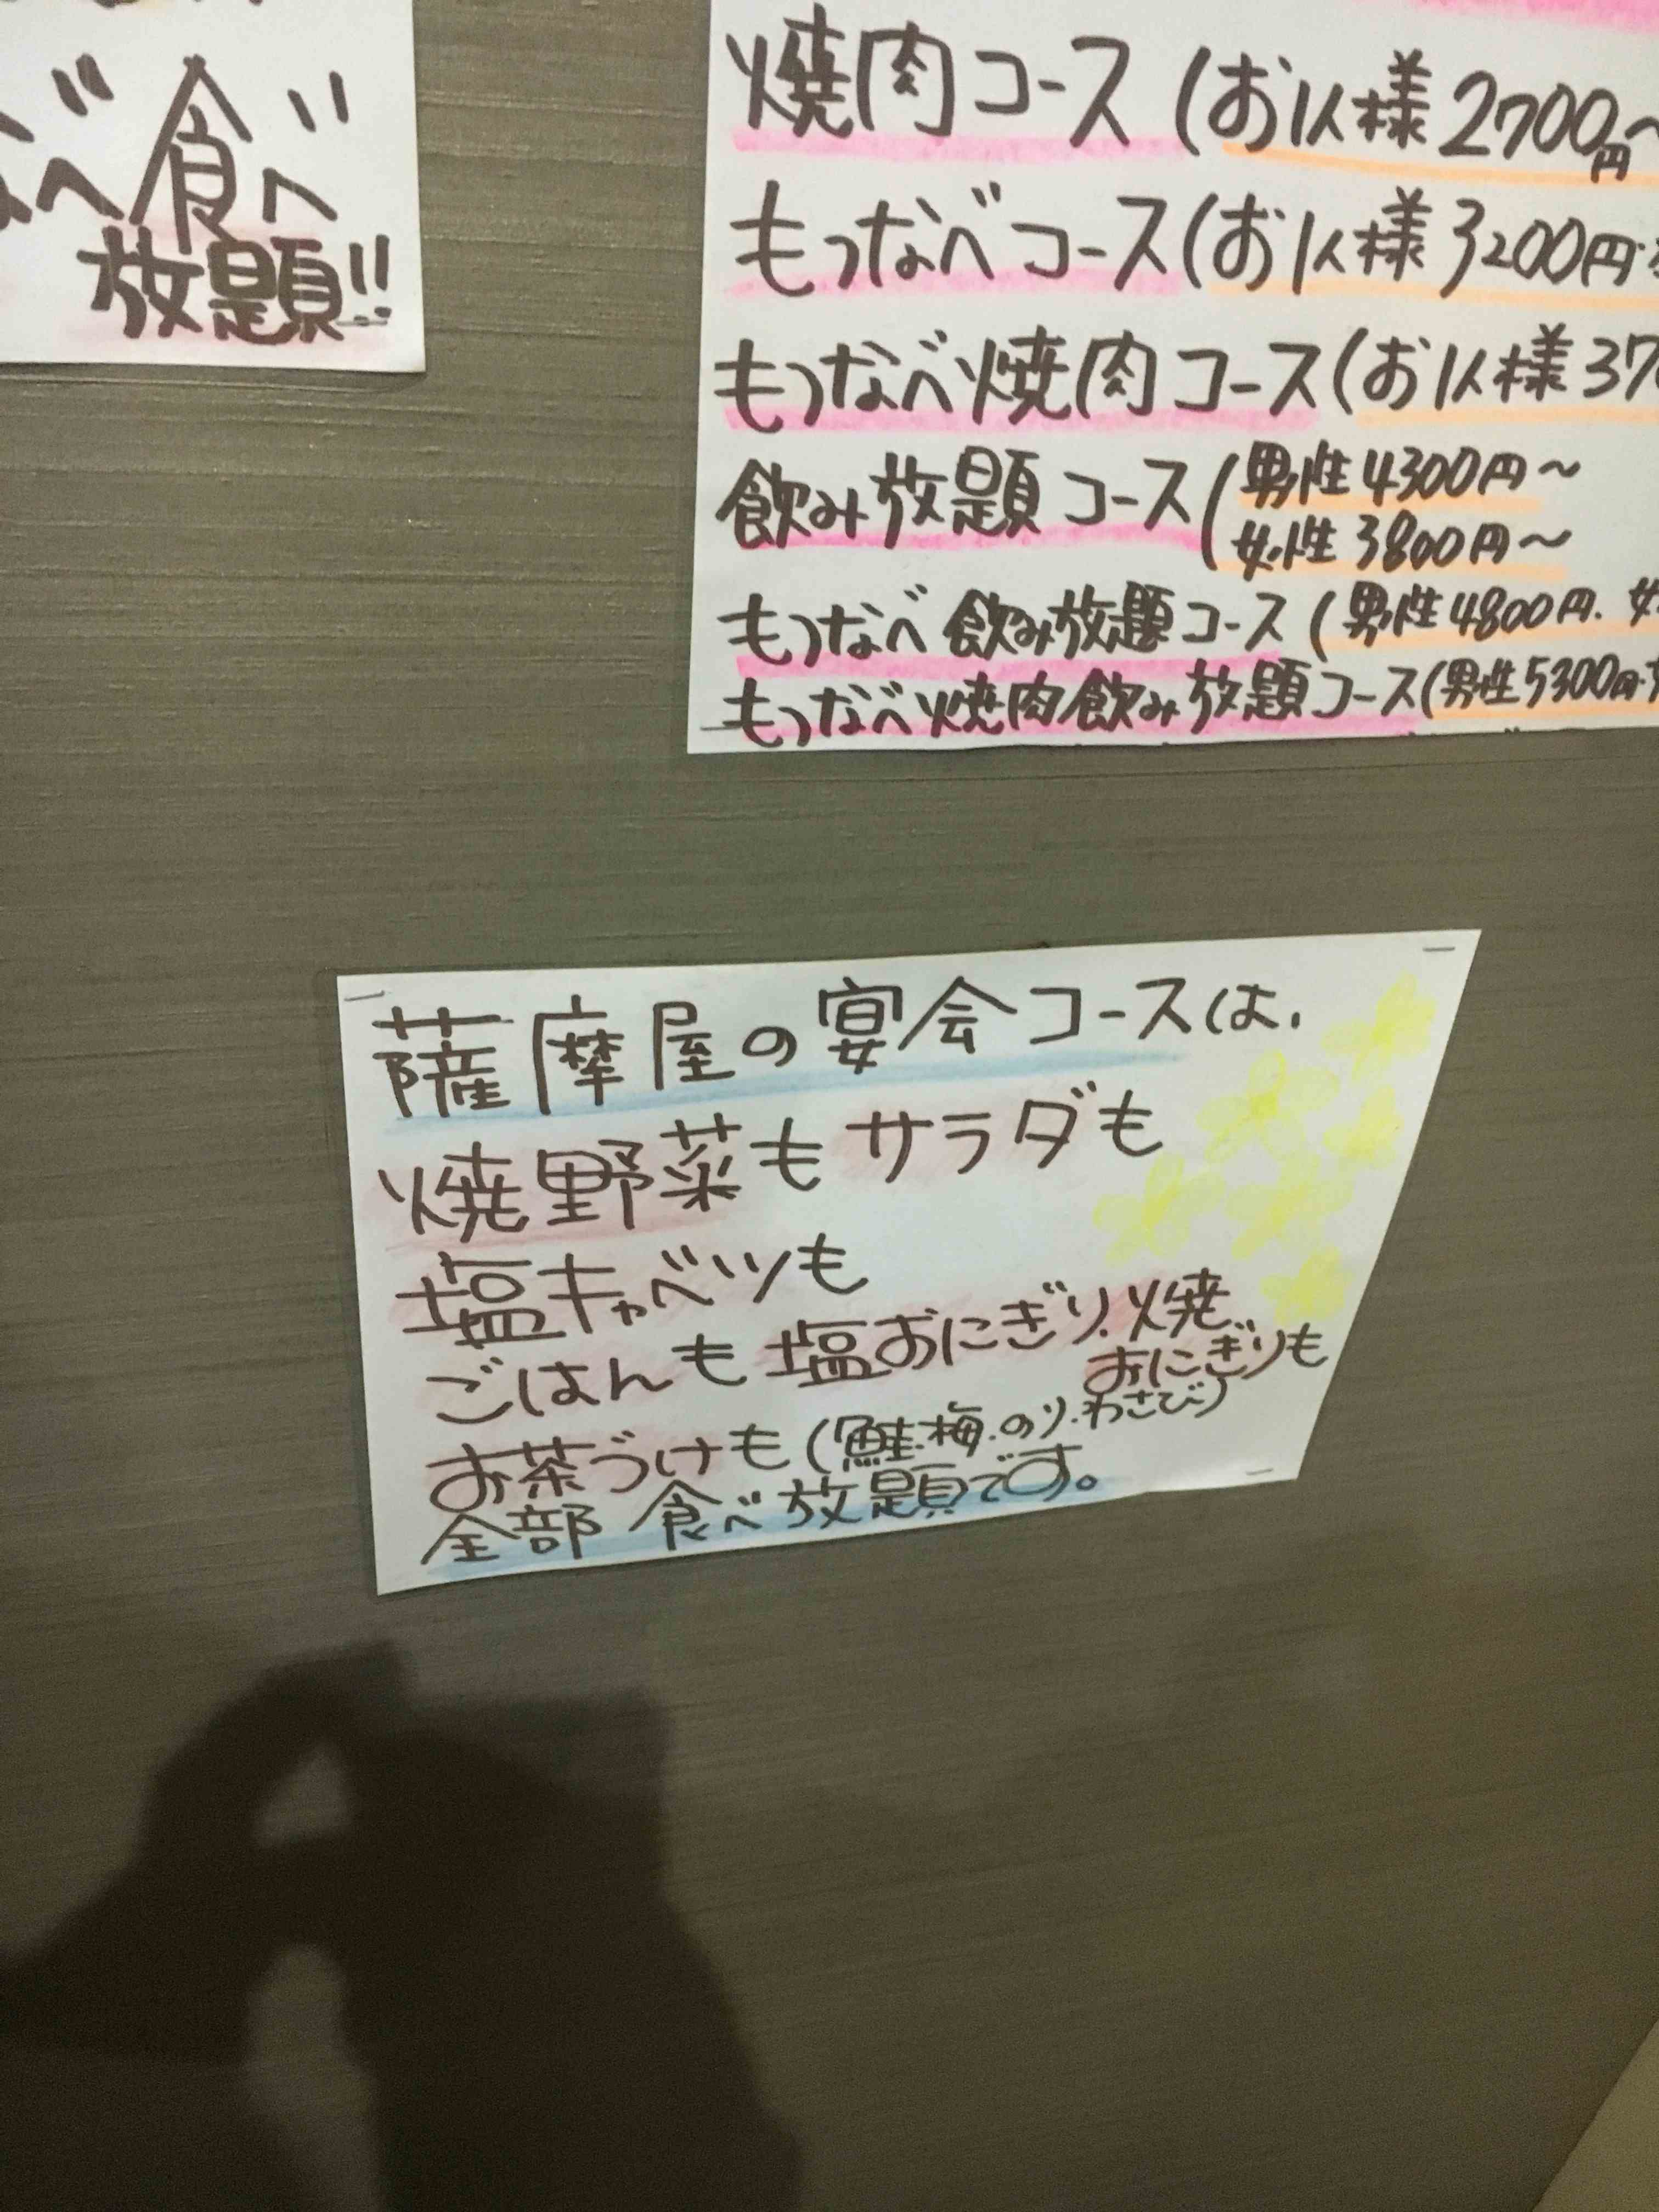 なべ食べ
放題!!
焼肉コース(お1人様2700円～
もつなべコース(お1人様3200円
もつなべ焼肉コース(お1人様37
飲み放題コース(男性4300円～
女性3800円～
もつなべ飲み放題コース(男性4800円.女
もつなべ焼肉飲み放題コース(男性5300円
薩摩屋の宴会コースは、
焼野菜もサラダも
塩キャベツも
ごはんも塩おにぎり.焼
おにぎりも
お茶づけも(鮭.梅.のり.わさび)
全部食べ放題です。